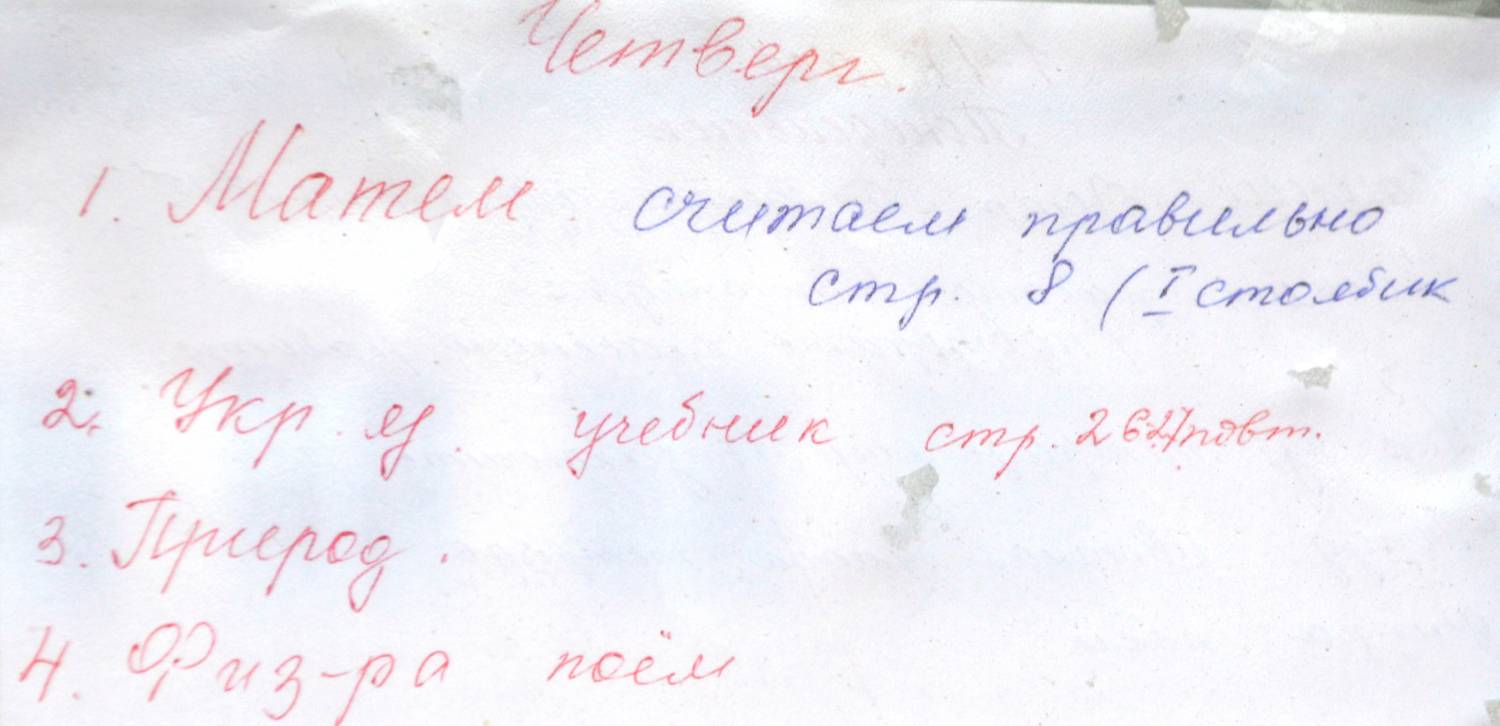 Четверг.
1. Матем. считаем правильно
стр. 8 (I столбик
2. Укр. яз. учебник стр. 26.27 повт.
3. Природ.
4. Физ-ра поём